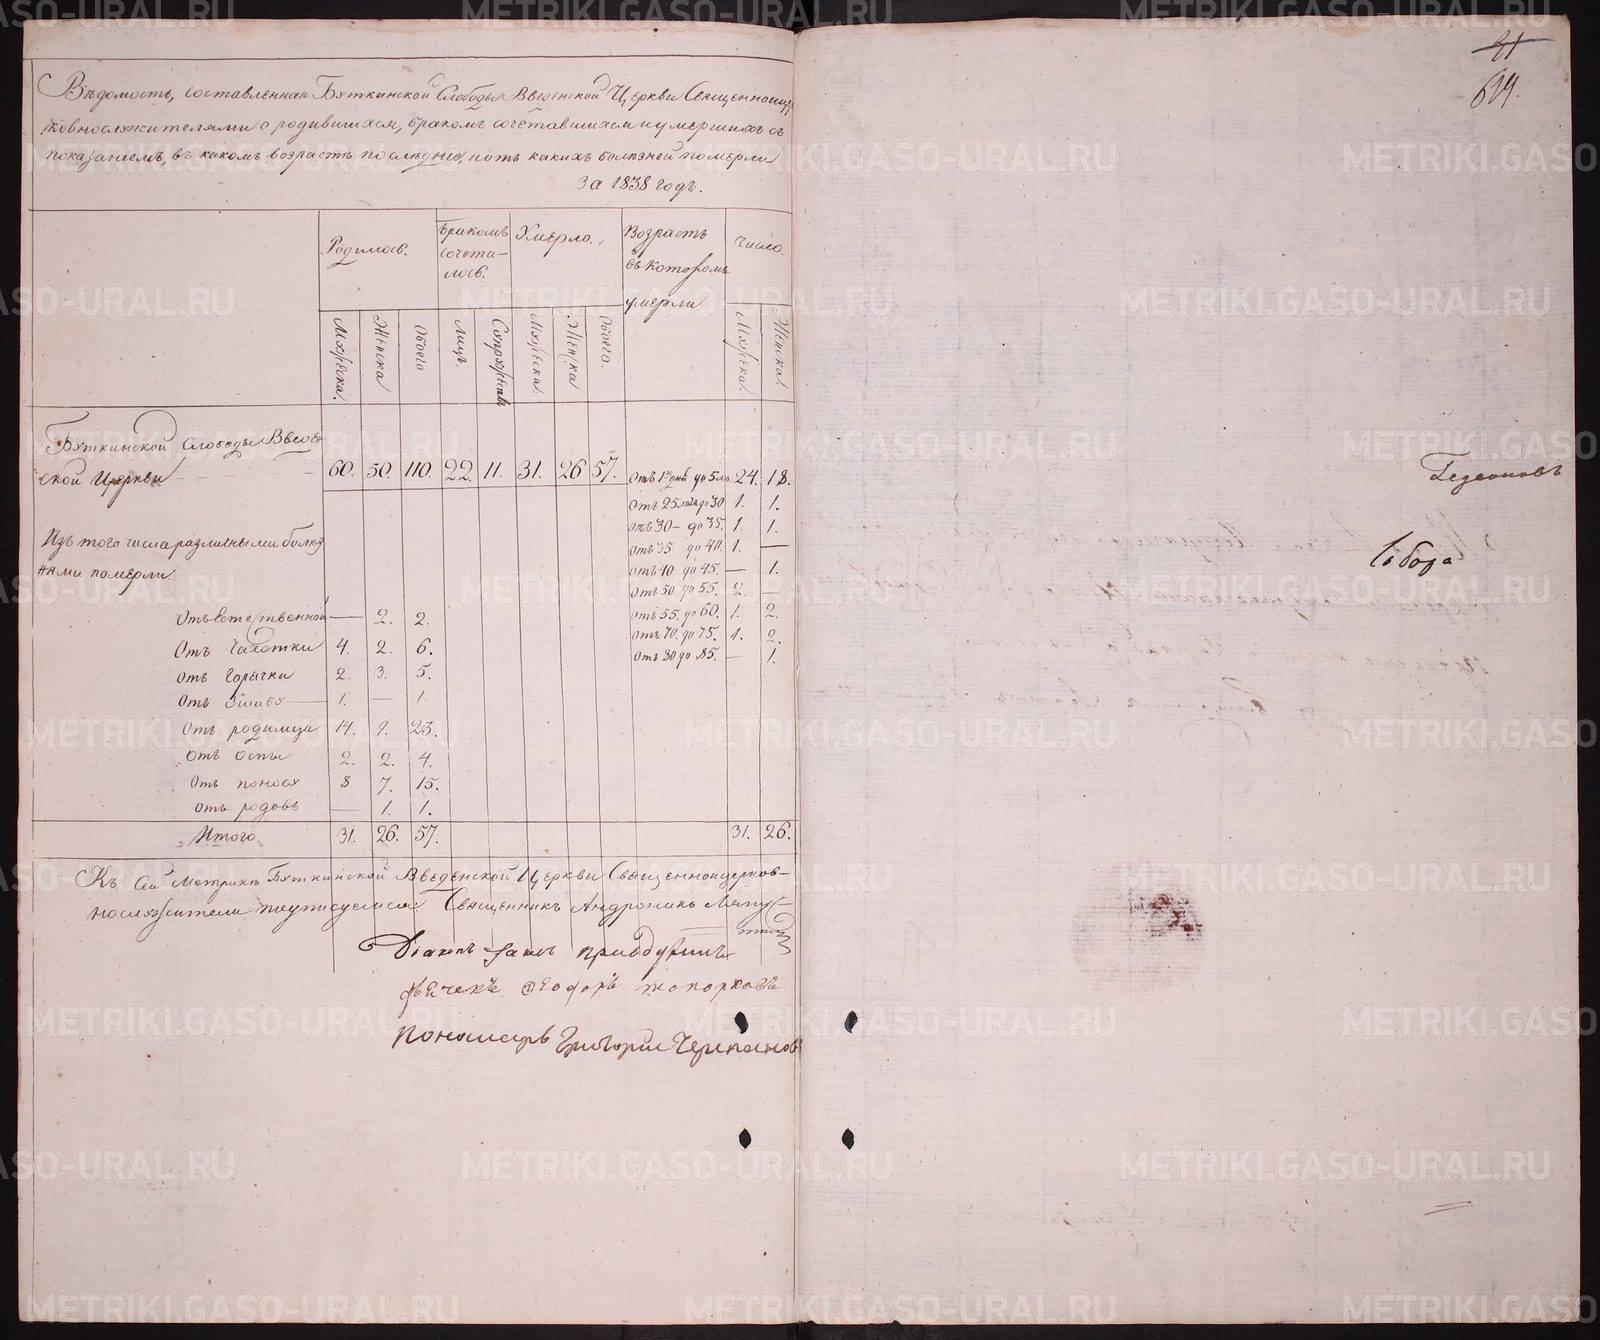 Вѣдомость, составленная Бѫткинской Слободы Введенской Церкви Священноцер
ковнослѫжителями о родившихся, бракомъ сочетавшихся и умершихъ съ
показаніемъ, въ какомъ возрастѣ послѣдніе, и отъ какихъ болѣзней померли
За 1838 годъ.
Родилось. Бракомъ сочета-лось. Умерло. Возрастъ въ которомъ умерли Число.
Мужеска. Женска Обоего Лицъ. Супружествъ Мужеска. Женска Обоего. Мужеска. Женска.
Буткинской Слободы Введен
ской Церкви 60. 50. 110. 22. 11. 31. 26 57. Отъ 1го дня до 5 лѣ 24. 18.
Отъ 25 лѣтъ до 30 1. 1.
Отъ 30 – до 35. 1. 1.
Изъ того числа различными болѣз Отъ 35 до 40. 1. —
нями померли: Отъ 40 до 45. — 1.
Отъ 50 до 55. 2. —
Отъ естественной — 2. 2. Отъ 55. до 60. 1. 2.
Отъ 70. до 75. 1. 2.
Отъ Чахотки 4. 2. 6. Отъ 80 до 85. — 1.
Отъ Горячки 2. 3. 5.
Отъ Ушибу 1. — 1.
Отъ родимца 14. 9. 23.
Отъ Оспы 2. 2. 4.
Отъ поносу 8 7. 15.
Отъ родовъ — 1. 1.
Итого 31. 26. 57. 31. 26.
Къ Сей Метрикѣ Буткинской Введенской Церкви Священноцерков-
нослужители подписуемся: Священникъ Андроникъ
Діаконъ
Ѳеодоръ Топорковъ
Пономарь Григорій Черепановъ
31
604.
Гедеоновъ
Собора
METRIKI.GASO-URAL.RU